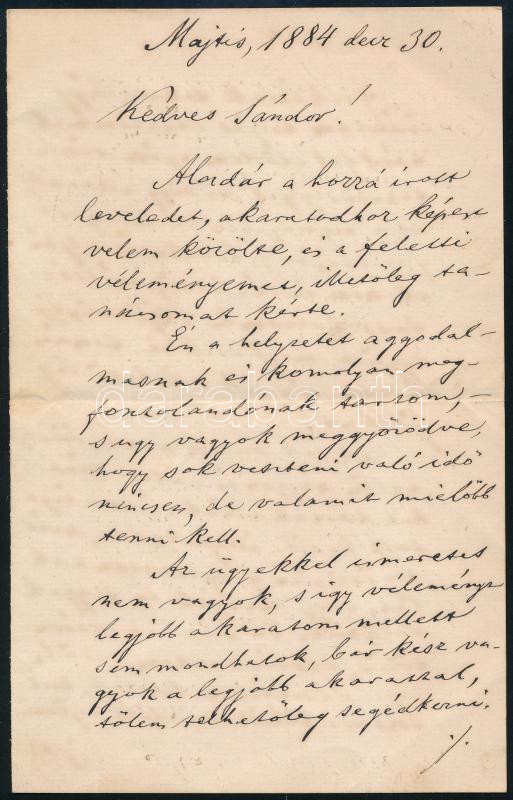 Majtis, 1884 decz 30.
Kedves Sándor!
Aladár a hozzá irott
leveledet, akaratodhoz képest
velem közölte, és a feletti
véleményemet, illetőleg ta-
nácsomat kérte.
Én a helyzetet aggodal-
masnak és komolyan meg-
fontolandónak tartom, -
s ugy vagyok meggyőződve,
hogy sok veszteni való idő
nincsen, de valamit mielőbb
tenni kell.
Az ügyekkel ismeretes
nem vagyok, s igy véleményt
legjobb akaratom mellett
sem mondhatok, bár kész va-
gyok a legjobb akarattal,
tőlem telhetőleg segédkezni.
./.
darabanth